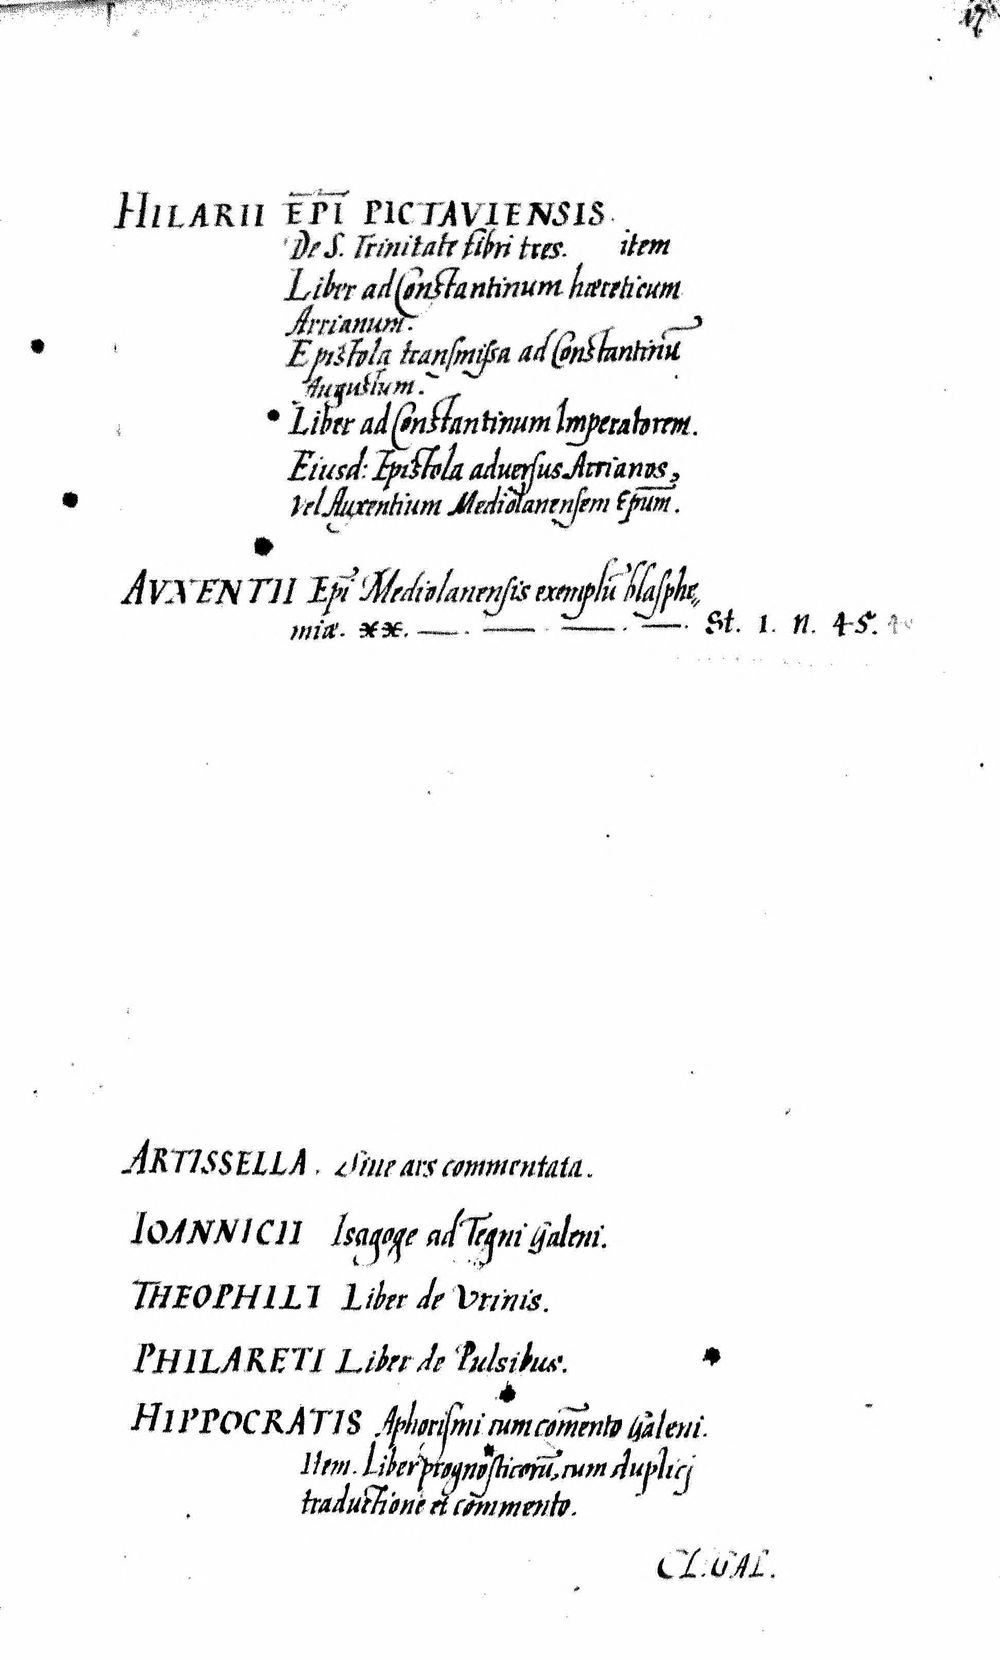 17
HILARII EPĪ PICTAVIENSIS.
De S. Trinitate libri tres. item
Liber ad Constantinum hæreticum
Arrianum.
Epistola transmissa ad Constantinū
Augustum.
Liber ad Constantinum Imperatorem.
Eiusd: Epistola aduersus Arrianos,
vel Auxentium Mediolanensem Epūm.
AVXENTII Epī Mediolanensis exemplū blasphe„
miæ. **. —. — . — . —. St. 1. n. 45.
ARTISSELLA. Siue ars commentata.
IOANNICII Isagoge ad Tegni Galeni.
THEOPHILI Liber de Vrinis.
PHILARETI Liber de Pulsibus.
HIPPOCRATIS Aphorismi cum com̄ento Galeni.
Item. Liber prognosticorū, cum duplicj
traductione et com̄mento.
CL. GAL.